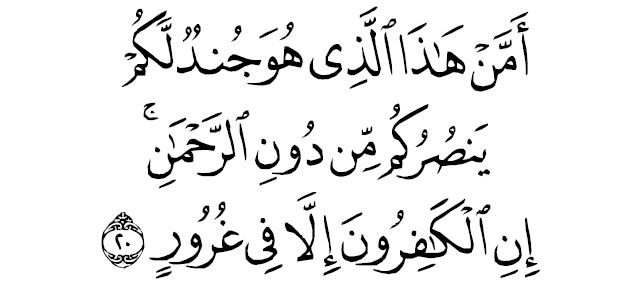 أَمَّنْ هَٰذَا ٱلَّذِى هُوَ جُندٌ لَّكُمْ
يَنصُرُكُم مِّن دُونِ ٱلرَّحْمَٰنِ ۚ
إِنِ ٱلْكَٰفِرُونَ إِلَّا فِى غُرُورٍ ٢٠